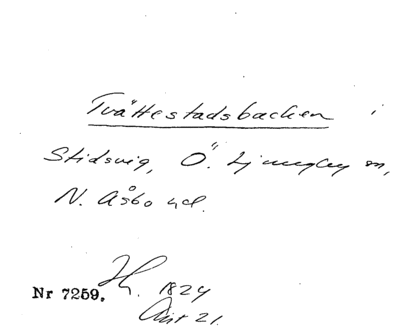 Tvättestadsbacken i
Stidsvig, Ö. Ljungby sn,
N. Åsbo hd.
Nr 7259. 1824
21.